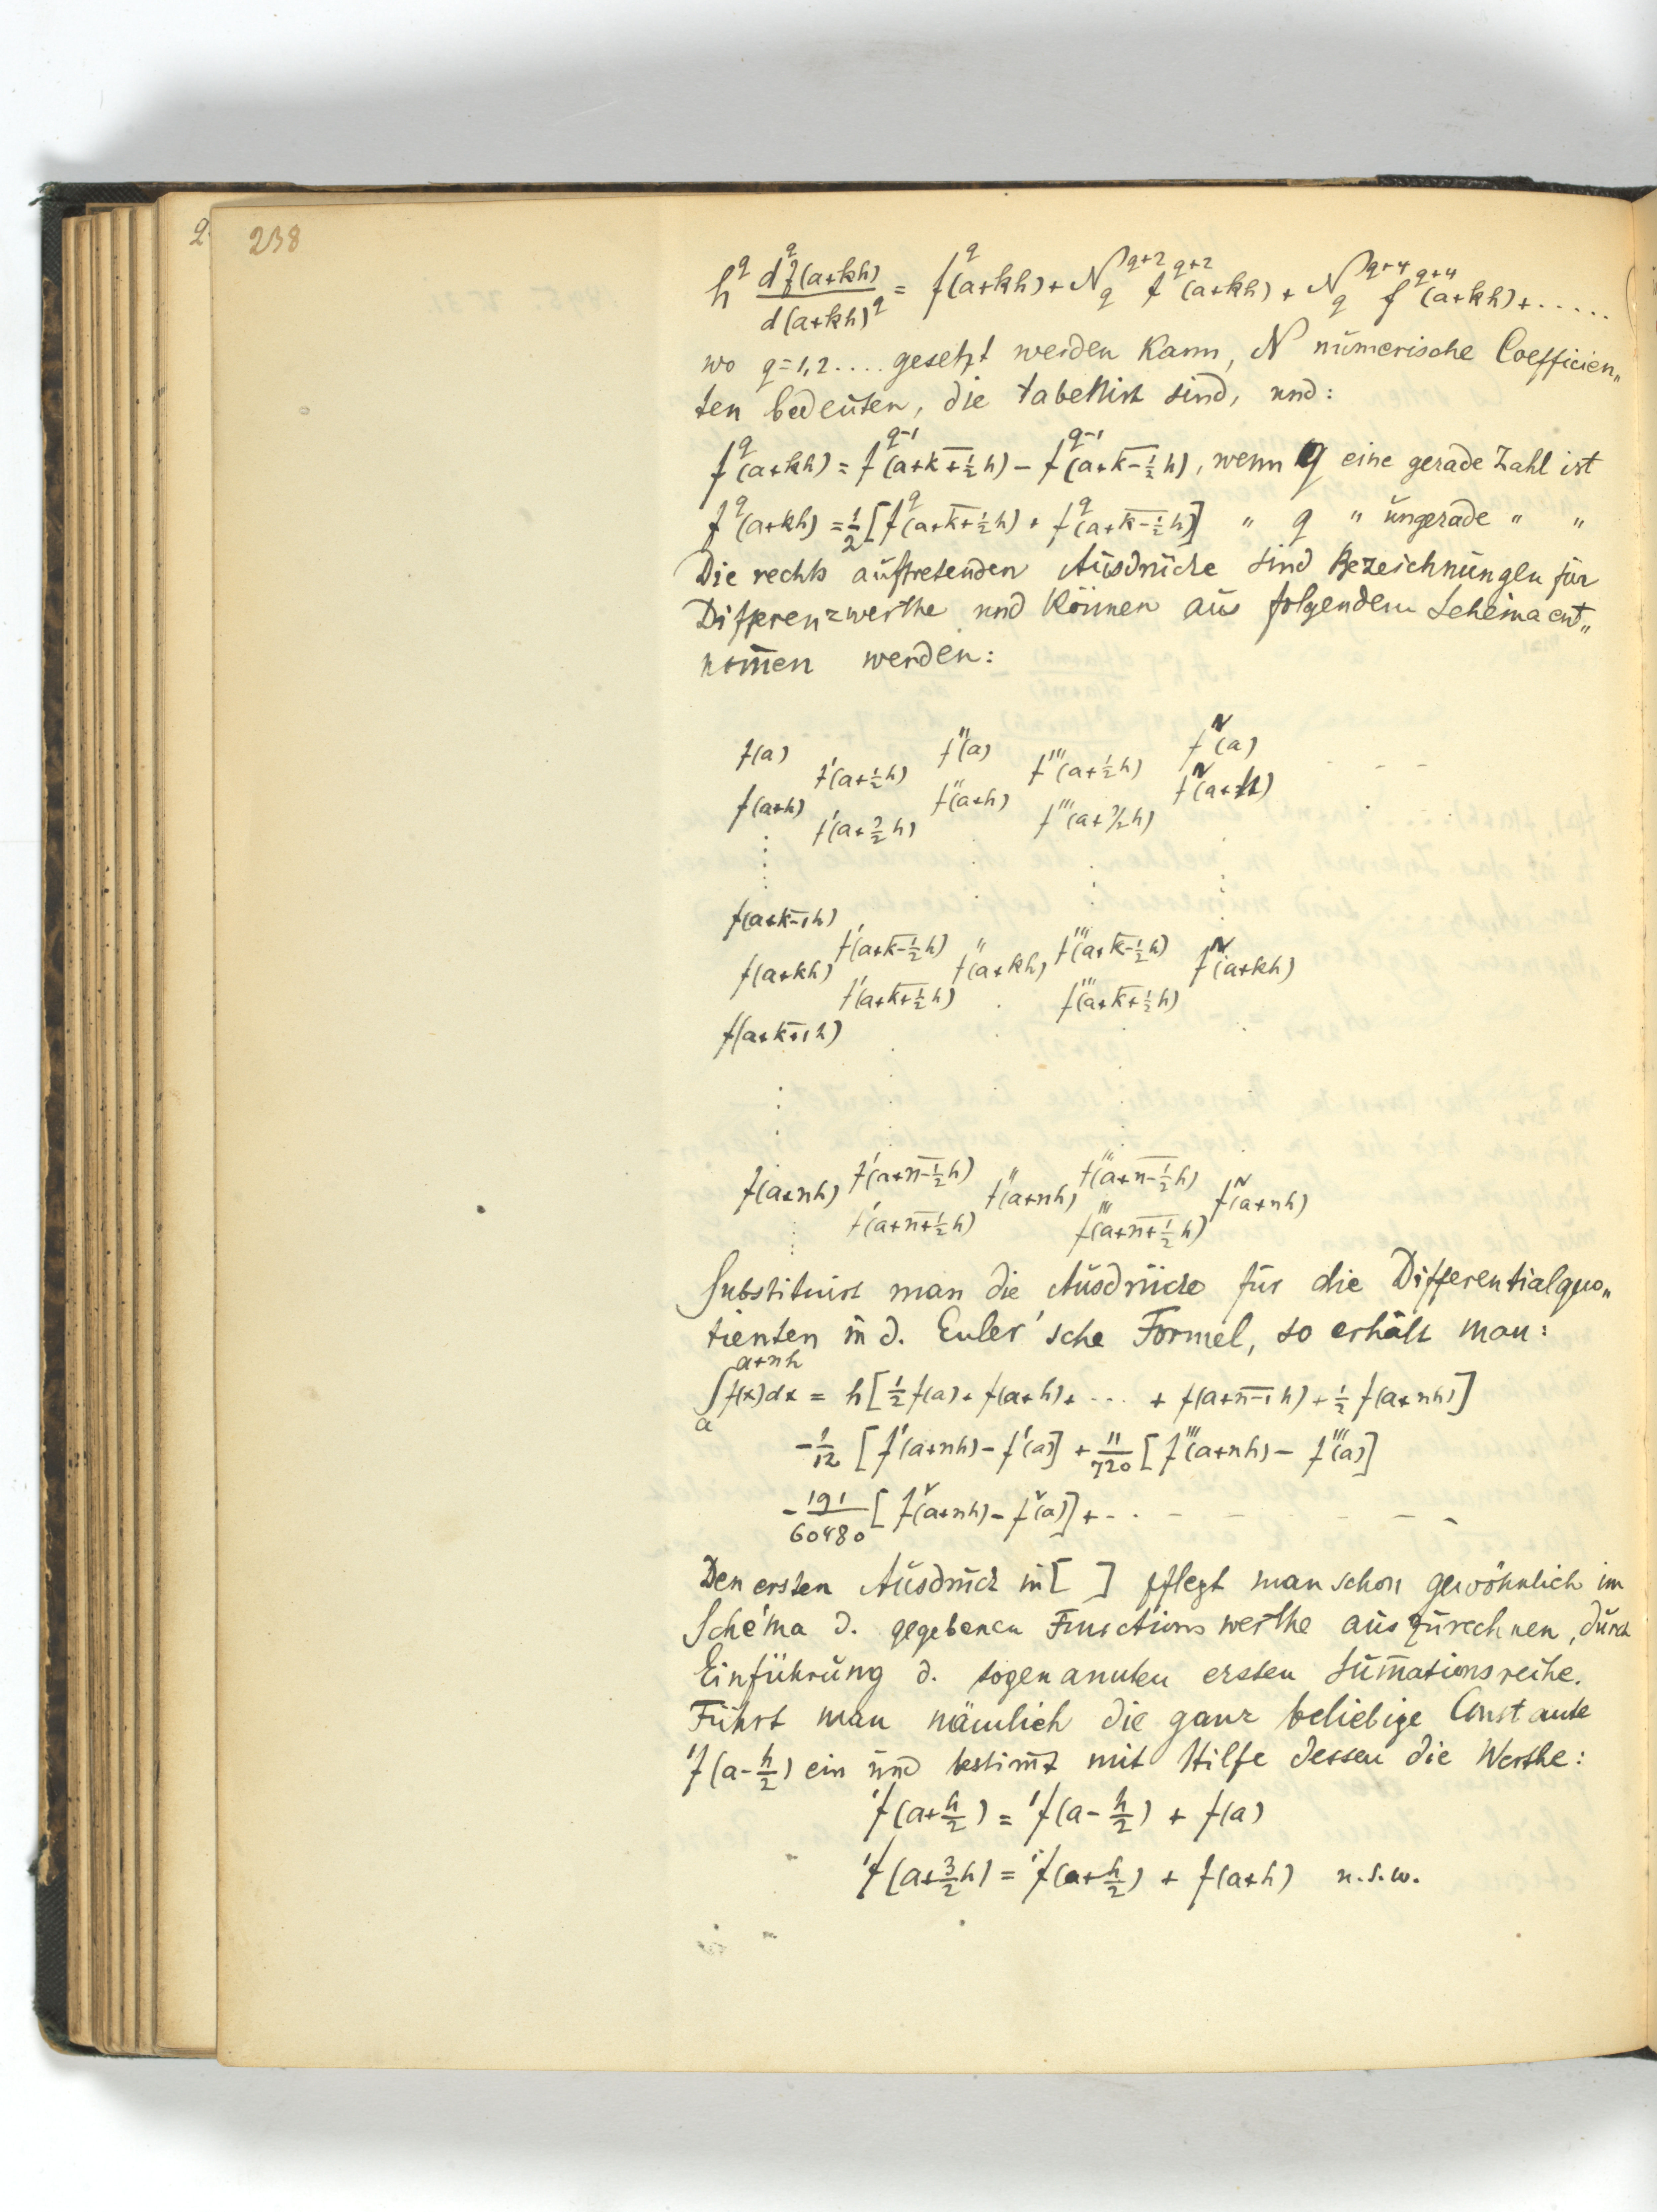 2
238
h^q d^q f(a+kh) / d(a+kh)^q = f^q(a+kh) + N_q^{q+2} f^{q+2}(a+kh) + N_q^{q+4} f^{q+4}(a+kh) + .....
wo q=1,2.... gesetzt werden kann, N numerische Coefficien„
ten bedeuten, die tabellirt sind, und:
f^q(a+kh) = f^{q-1}(a+\overline{k+½}h) - f^{q-1}(a+\overline{k-½}h), wenn q eine gerade Zahl ist
f^q(a+kh) = ½[f^q(a+\overline{k+½}h) + f^q(a+\overline{k-½}h)] " q " ungerade " "
Die rechts auftretenden Ausdrücke sind Bezeichnungen für
Differenzwerthe und können aus folgendem Schema ent„
nom̄en werden:
f(a) f''(a) f^{IV}(a)
f'(a+½h) f'''(a+½h) - - -
f(a+h) f''(a+h) f^{IV}(a+h)
f'(a+3/2 h) f'''(a+3/2 h)
f(a+\overline{k-1}h)
f'(a+\overline{k-½}h) f'''(a+\overline{k-½}h)
f(a+kh) f''(a+kh) f^{IV}(a+kh)
f'(a+\overline{k+½}h) f'''(a+\overline{k+½}h)
f(a+\overline{k+1}h)
f'(a+\overline{n-½}h) f'''(a+\overline{n-½}h)
f(a+nh) f''(a+nh) f^{IV}(a+nh)
f'(a+\overline{n+½}h) f'''(a+\overline{n+½}h)
Substituirt man die Ausdrücke für die Differentialquo„
tienten in d. Euler'sche Formel, so erhält man:
∫_a^{a+nh} f(x)dx = h[½f(a) + f(a+h) + ... + f(a+\overline{n-1}h) + ½f(a+nh)]
- 1/12 [f'(a+nh) - f'(a)] + 11/720 [f'''(a+nh) - f'''(a)]
- 191/60480 [f^V(a+nh) - f^V(a)] + - . - - - - - -
Den ersten Ausdruck in [ ] pflegt man schon gewöhnlich im
Schema d. gegebenen Functionswerthe auszurechnen, durch
Einführung d. sogenannten ersten Sum̄ationsreihe.
Führt man nämlich die ganz beliebige Constante
'f(a-h/2) ein und bestim̄t mit Hilfe dessen die Werthe:
'f(a+h/2) = 'f(a-h/2) + f(a)
'f(a+3/2 h) = 'f(a+h/2) + f(a+h) u.s.w.